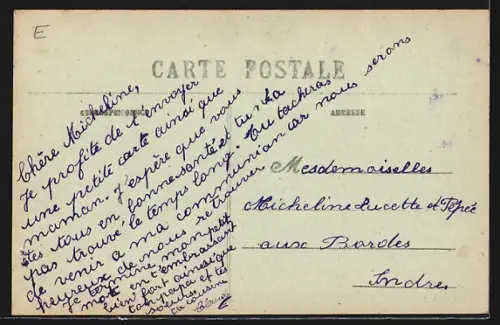 E
CARTE POSTALE
CORRESPONDANCE
ADRESSE
Chère Micheline,
Je profite de t'envoyer
une petite carte ainsi que
maman. J'espère que vous
êtes tous en bonne santé et tu n'a
pas trouvé le temps long. Tu tacheras
de venir à ma communion car nous serons
heureux de nous retrouver
Je termine mon petit
mot en t'embrassant
bien fort ainsi que
ton papa et tes
soeurs
ta cousine
Mesdemoiselles
Micheline Lucette et Pépée
aux Bordes
Indre